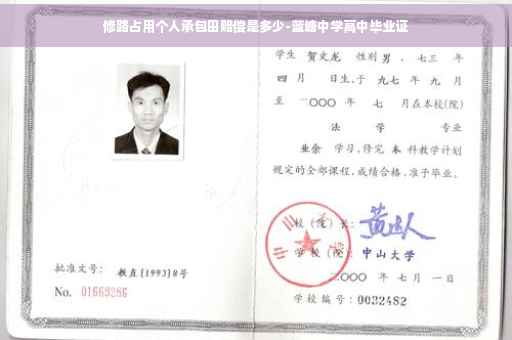 修路占用个人承包田赔偿是多少-蓝嶂中学高中毕业证
学生 贺文龙 性别 男 、七三 年
四 月 日生,于 九七 年 九 月
至 二〇〇〇 年 七 月在本校(院)
法 学 专业
业余 学习,修完 本 科教学计划
规定的全部课程,成绩合格,准予毕业。
校(院)长:
学校(院): 中山大学
二〇〇〇 年 七月 一日
批准文号: 教直[1993]8号
No. 01663286
学校编号: 0032482